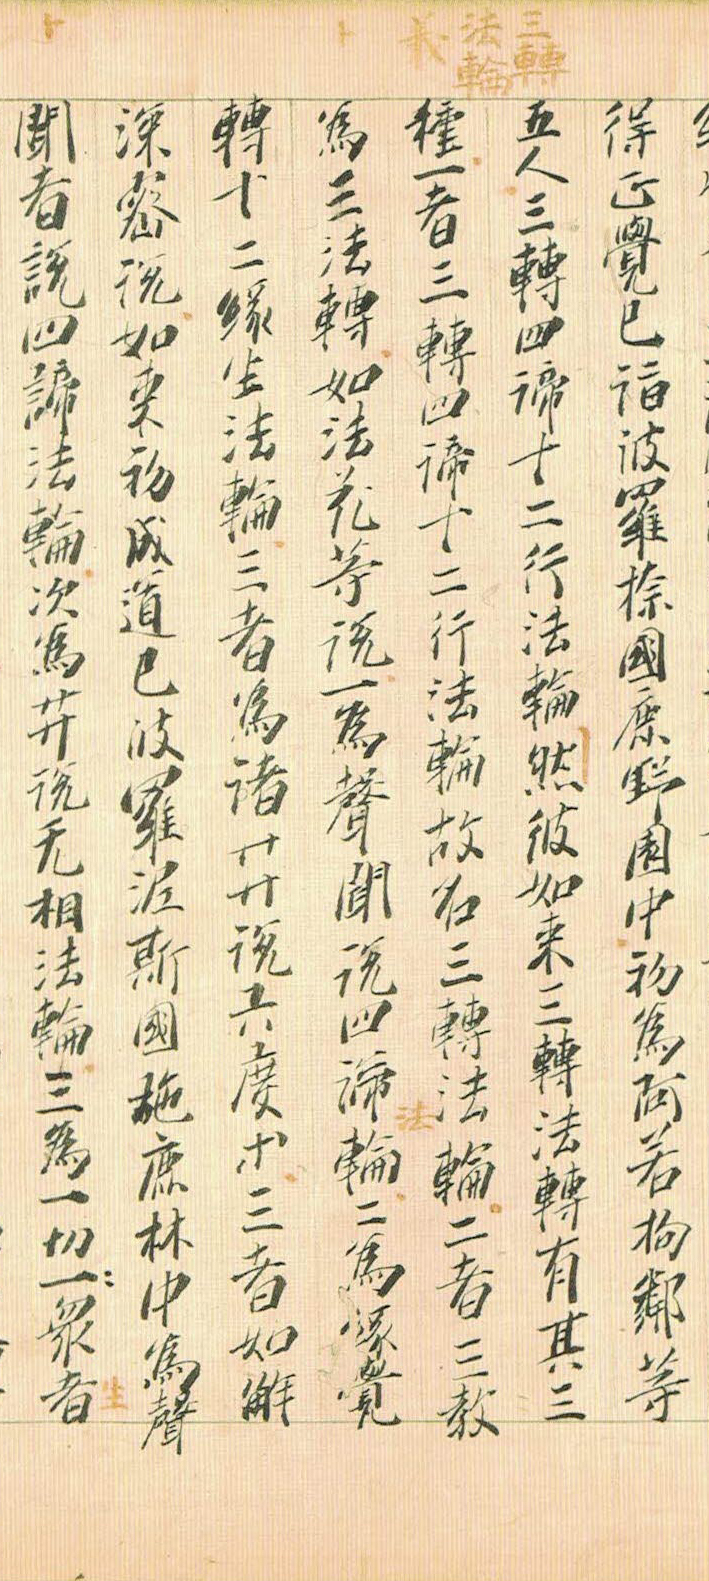 三轉
法輪
義
得正覺已詣波羅捺國鹿野園中初為阿若拘鄰等
五人三轉四諦十二行法輪然彼如来三轉法轉有其三
種一者三轉四諦十二行法輪故名三轉法輪二者三教
法
為三法轉如法花等説一為聲聞説四諦輪二為縁覺
轉十二縁生法輪三者為諸卄卄説六度小三者如解
深密説如来初成道已波羅泥斯國施鹿林中為聲
生
聞者説四諦法輪次為卄卄説无相法輪三為一切一衆者